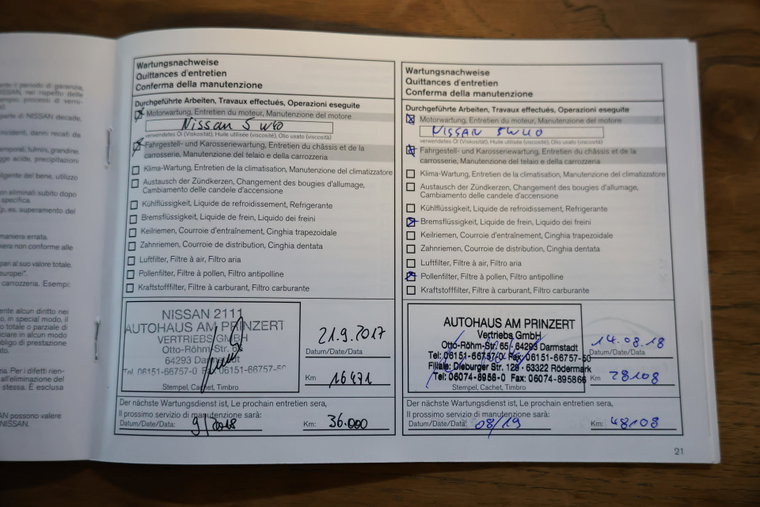 Wartungsnachweise
Quittances d'entretien
Conferma della manutenzione
Durchgeführte Arbeiten, Travaux effectués, Operazioni eseguite
Motorwartung, Entretien du moteur, Manutenzione del motore
Nissan 5W40
verwendetes Öl (Viskosität), Huile utilisée (viscosité), Olio usato (viscosità)
Fahrgestell- und Karosseriewartung, Entretien du châssis et de la
carrosserie, Manutenzione del telaio e della carrozzeria
Klima-Wartung, Entretien de la climatisation, Manutenzione del climatizzatore
Austausch der Zündkerzen, Changement des bougies d'allumage,
Cambiamento delle candele d'accensione
Kühlflüssigkeit, Liquide de refroidissement, Refrigerante
Bremsflüssigkeit, Liquide de frein, Liquido dei freini
Keilriemen, Courroie d'entraînement, Cinghia trapezoidale
Zahnriemen, Courroie de distribution, Cinghia dentata
Luftfilter, Filtre à air, Filtro aria
Pollenfilter, Filtre à pollen, Filtro antipolline
Kraftstofffilter, Filtre à carburant, Filtro carburante
NISSAN 2111
AUTOHAUS AM PRINZERT
VERTRIEBS GMBH
Otto-Röhm-Str.
64293 Darmstadt
Tel. 06151-66757-0 Fax 06151-66757-50
Stempel, Cachet, Timbro
21.9.2017
Datum/Date/Data
Km 16471
Der nächste Wartungsdienst ist, Le prochain entretien sera,
Il prossimo servizio di manutenzione sarà:
Datum/Date/Data: 9/2018 Km: 36.000
Wartungsnachweise
Quittances d'entretien
Conferma della manutenzione
Durchgeführte Arbeiten, Travaux effectués, Operazioni eseguite
Motorwartung, Entretien du moteur, Manutenzione del motore
NISSAN 5W40
verwendetes Öl (Viskosität), Huile utilisée (viscosité), Olio usato (viscosità)
Fahrgestell- und Karosseriewartung, Entretien du châssis et de la
carrosserie, Manutenzione del telaio e della carrozzeria
Klima-Wartung, Entretien de la climatisation, Manutenzione del climatizzatore
Austausch der Zündkerzen, Changement des bougies d'allumage,
Cambiamento delle candele d'accensione
Kühlflüssigkeit, Liquide de refroidissement, Refrigerante
Bremsflüssigkeit, Liquide de frein, Liquido dei freini
Keilriemen, Courroie d'entraînement, Cinghia trapezoidale
Zahnriemen, Courroie de distribution, Cinghia dentata
Luftfilter, Filtre à air, Filtro aria
Pollenfilter, Filtre à pollen, Filtro antipolline
Kraftstofffilter, Filtre à carburant, Filtro carburante
AUTOHAUS AM PRINZERT
Vertriebs GmbH
Otto-Röhm-Str. 65 64293 Darmstadt
Tel: 06151-66757-0 Fax 06151-66757-50
Filiale: Dieburger Str. 128 - 63322 Rödermark
Tel: 06074-8958-0 Fax: 06074-895866
Stempel, Cachet, Timbro
14.08.18
Datum/Date/Data
Km 28108
Der nächste Wartungsdienst ist, Le prochain entretien sera,
Il prossimo servizio di manutenzione sarà:
Datum/Date/Data: 08/19 Km: 48108
21